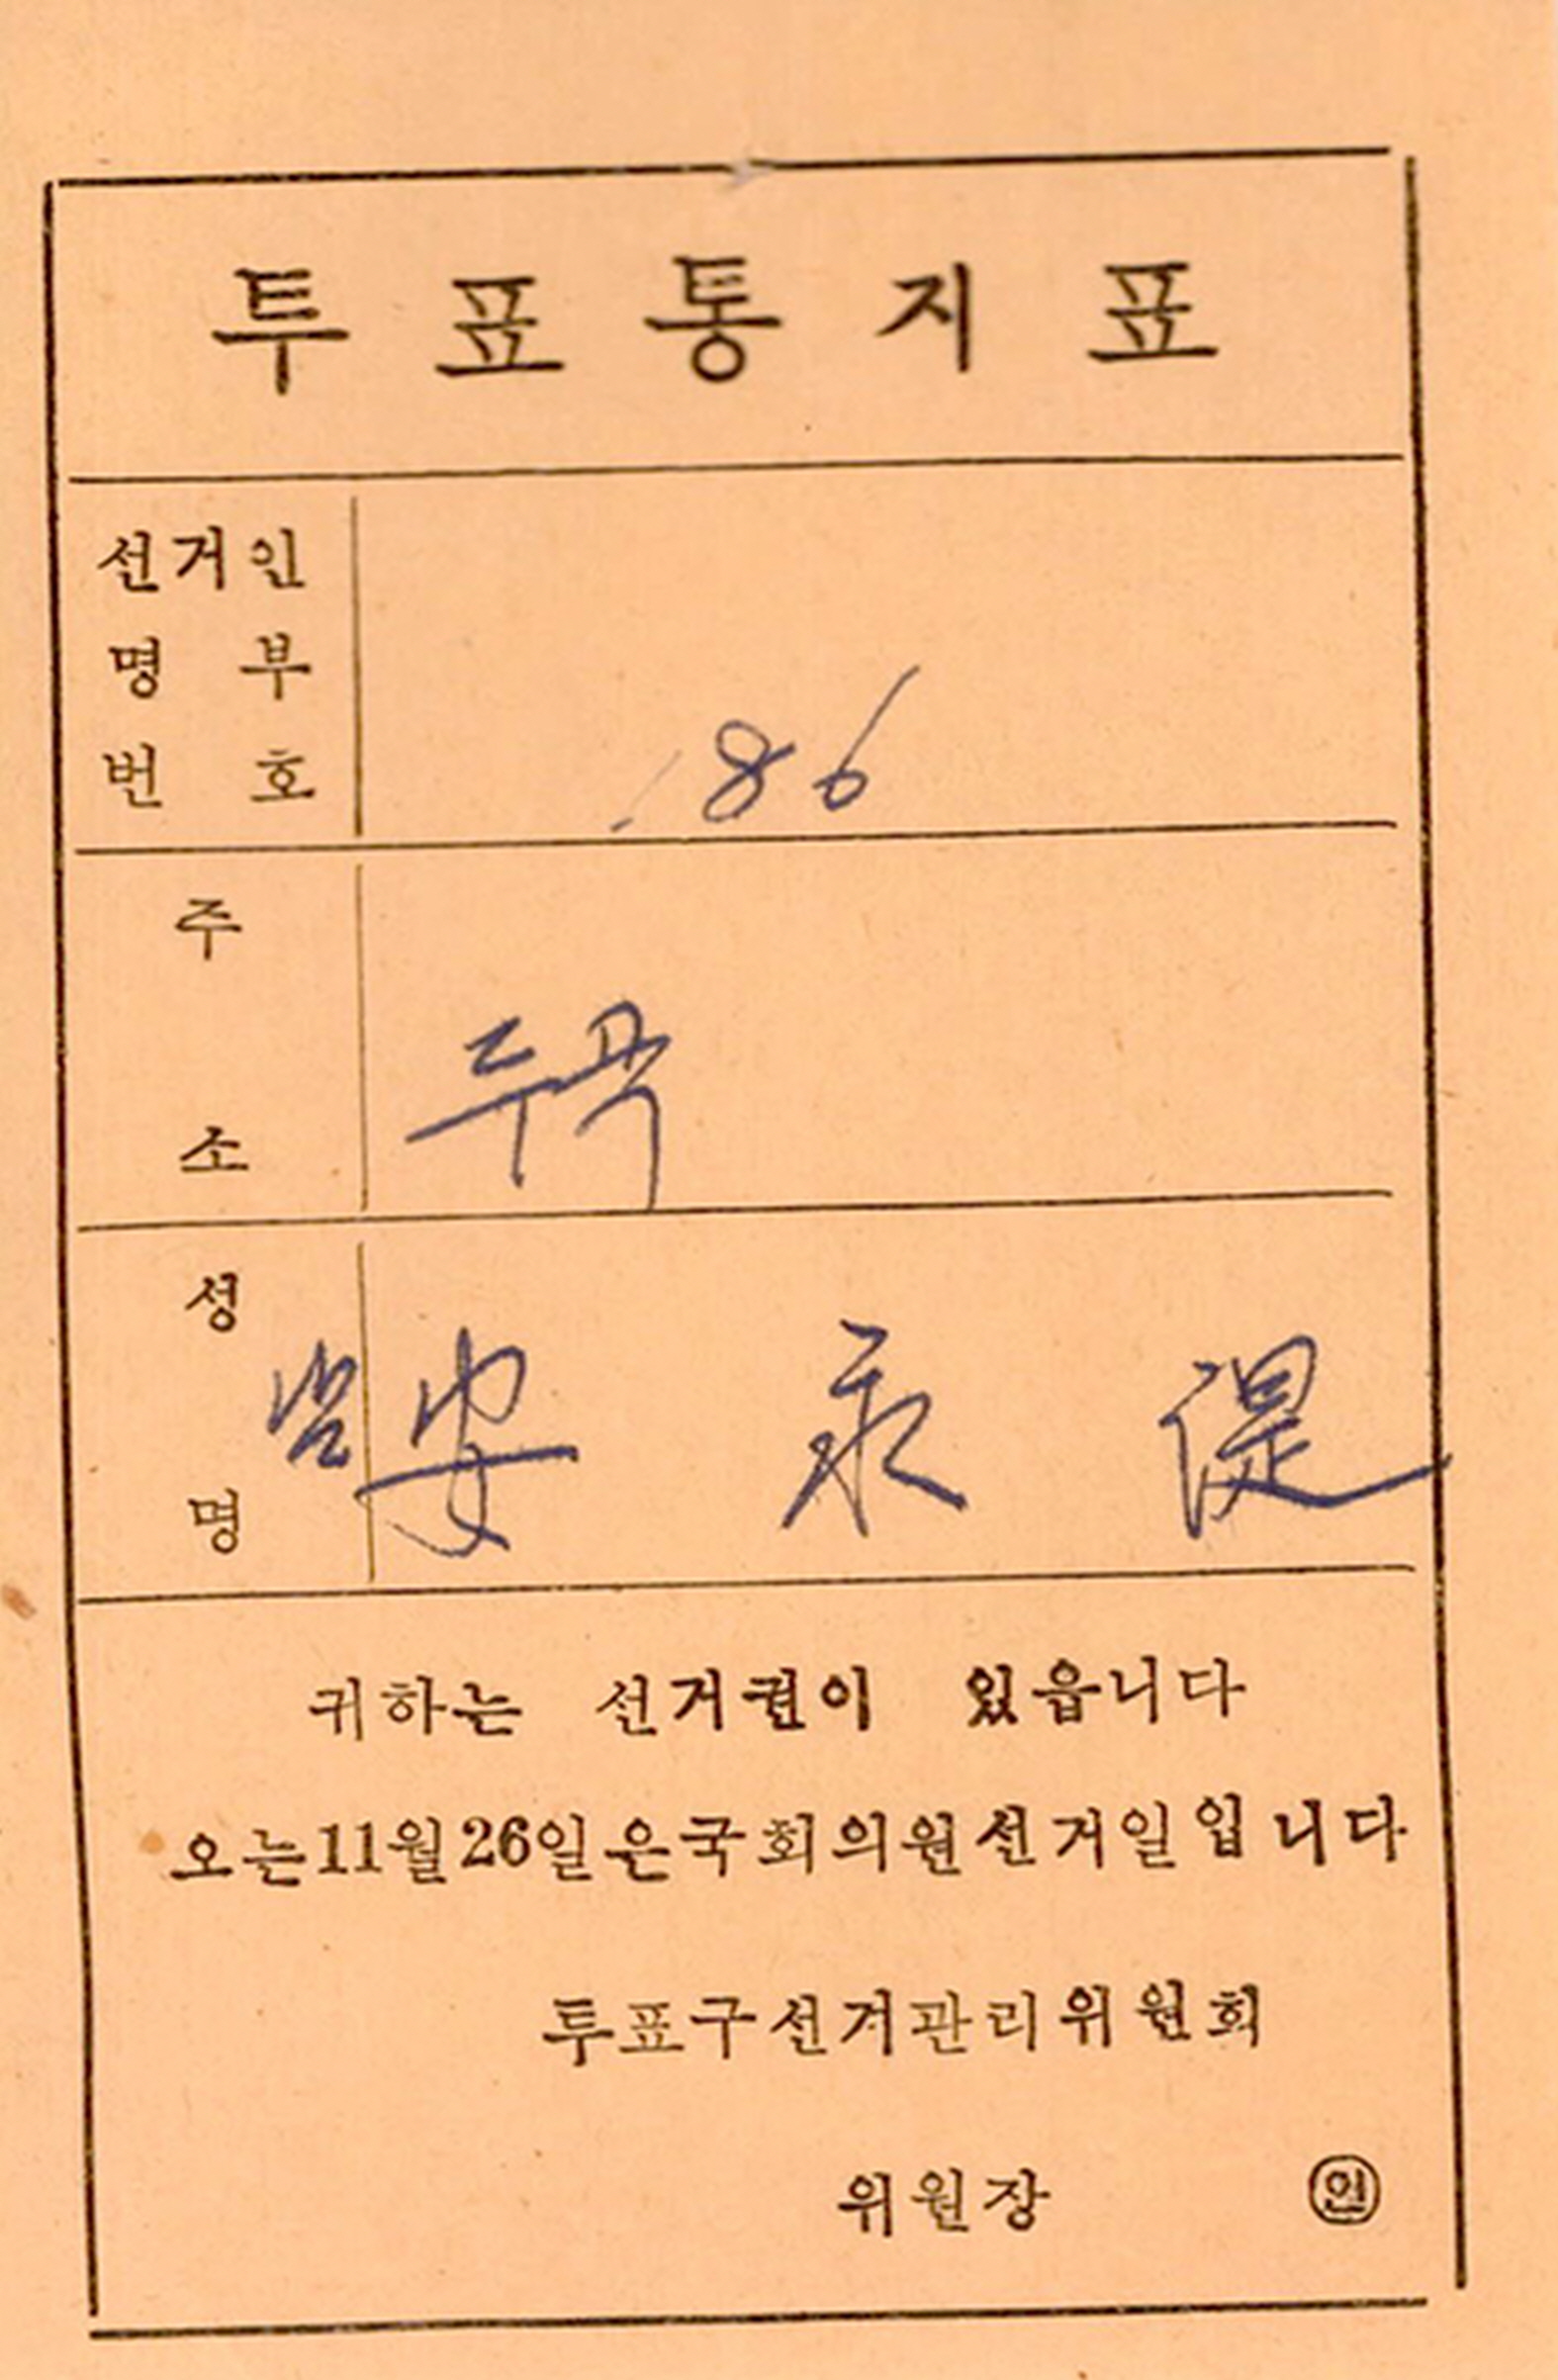 투표통지표
선거인
명부
번호
86
주
소
두곡
성
명
安永湜
귀하는 선거권이 있읍니다
오는11월26일은국회의원선거일입니다
투표구선거관리위원회
위원장 인